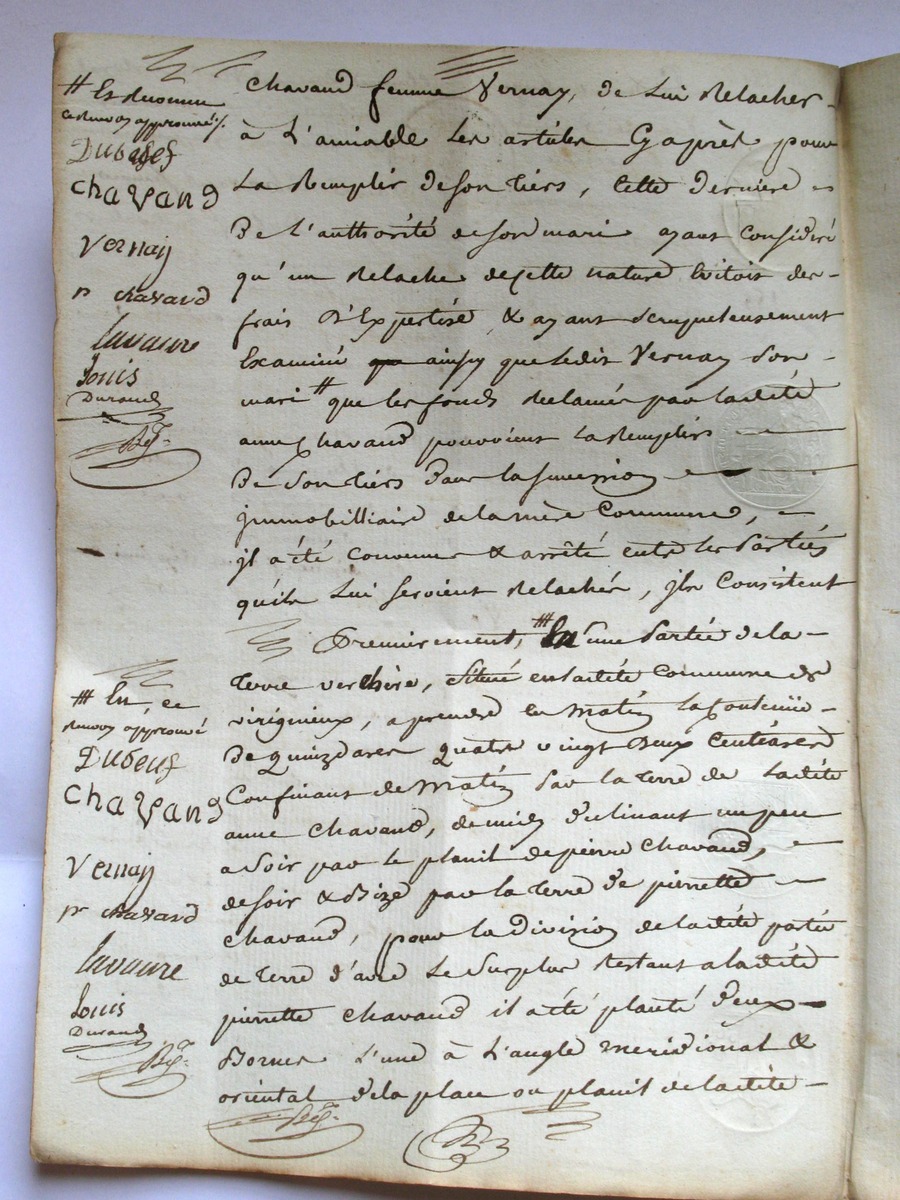 # Et Reconnu
ce Renvoy approuvé /.
Dubeuf
Chavand
Vernay
pr chavand
Lavaure
Louis
Durand
chavand femme Vernay, de Lui Relacher
à L'amiable Les articles Cy après pour
La Remplir de son tiers, Cette derniere
De L'authorité de son mari ayant Considéré
qu'un Relache de cette nature Evitoit des
frais D'Expertise, & ayant scrupuleusement
Examiné ainsy que Ledit Vernay son
mari # que les fonds Reclamés par ladité
anne Chavand pouvoient La Remplir
De Son tiers Dans la succession
jmmobilliaire de la mère Commune,
jl a été convenu & arrêté entre les Parties
qu'ils Lui seroient Relachés, jls Consistent
Premierement, ### En une Partie de la
Terre verchère, située en ladité Commune de
virigneux, a prendre en matin La Contenüe
De quinz ares quatre vingt deux Centiares
Confinant de matin Par la terre de Ladité
anne Chavand, de midy déclinant un peu
a Soir par le planit de pierre Chavand,
de soir & Bize par la terre de pierrette
Chavand, pour la division de ladité partie
de terre d'avec Le Surplus Restant a ladité
pierrette Chavand il a été planté deux
Bornes L'une à L'angle meridional &
oriental de la place ou planit de ladité
### En, ce
Renvoy approuvé
Dubeuf
Chavand
Vernay
pr chavard
Lavaure
Louis
Durand